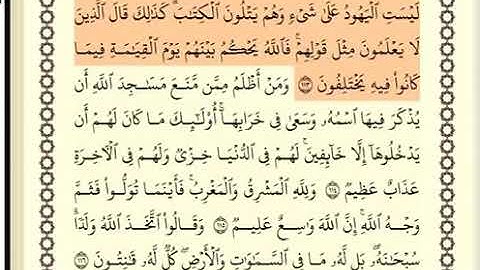 لَيْسَتِ الْيَهُودُ عَلَىٰ شَيْءٍ وَهُمْ يَتْلُونَ الْكِتَابَ ۗ كَذَٰلِكَ قَالَ الَّذِينَ
لَا يَعْلَمُونَ مِثْلَ قَوْلِهِمْ ۚ فَاللَّهُ يَحْكُمُ بَيْنَهُمْ يَوْمَ الْقِيَامَةِ فِيمَا
كَانُوا فِيهِ يَخْتَلِفُونَ ١١٣ وَمَنْ أَظْلَمُ مِمَّن مَّنَعَ مَسَاجِدَ اللَّهِ أَن
يُذْكَرَ فِيهَا اسْمُهُ وَسَعَىٰ فِي خَرَابِهَا ۚ أُولَٰئِكَ مَا كَانَ لَهُمْ أَن
يَدْخُلُوهَا إِلَّا خَائِفِينَ ۚ لَهُمْ فِي الدُّنْيَا خِزْيٌ وَلَهُمْ فِي الْآخِرَةِ
عَذَابٌ عَظِيمٌ ١١٤ وَلِلَّهِ الْمَشْرِقُ وَالْمَغْرِبُ ۚ فَأَيْنَمَا تُوَلُّوا فَثَمَّ
وَجْهُ اللَّهِ ۚ إِنَّ اللَّهَ وَاسِعٌ عَلِيمٌ ١١٥ وَقَالُوا اتَّخَذَ اللَّهُ وَلَدًا ۗ
سُبْحَانَهُ ۖ بَل لَّهُ مَا فِي السَّمَاوَاتِ وَالْأَرْضِ ۖ كُلٌّ لَّهُ قَانِتُونَ ١١٦